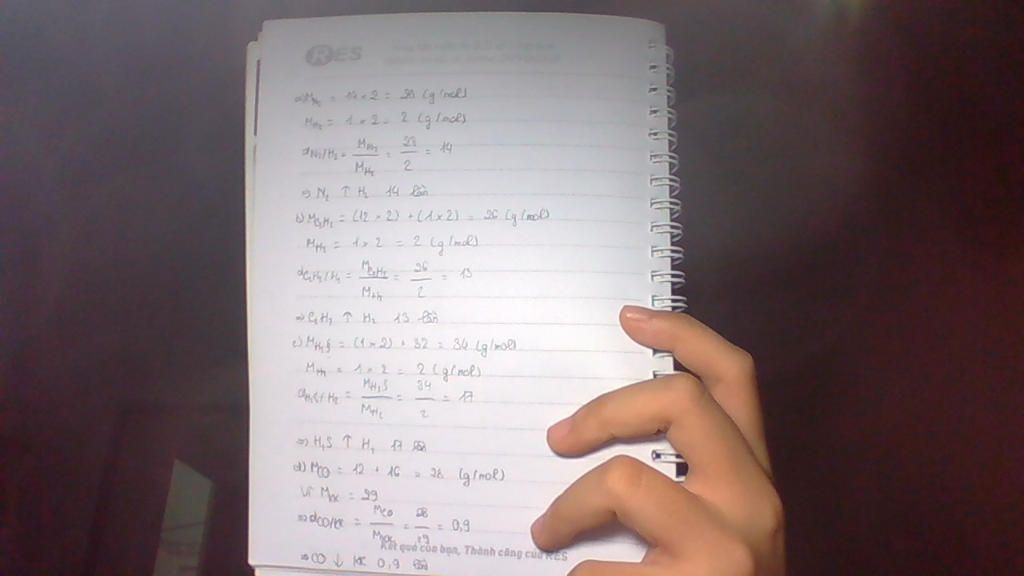 RES
a) M_N₂ = 14 × 2 = 28 (g/mol)
M_H₂ = 1 × 2 = 2 (g/mol)
d N₂/H₂ = M_N₂ / M_H₂ = 28 / 2 = 14
⇒ N₂ ↑ H₂ 14 lần
b) M_C₂H₂ = (12 × 2) + (1 × 2) = 26 (g/mol)
M_H₂ = 1 × 2 = 2 (g/mol)
d C₂H₂/H₂ = M_C₂H₂ / M_H₂ = 26 / 2 = 13
⇒ C₂H₂ ↑ H₂ 13 lần
c) M_H₂S = (1 × 2) + 32 = 34 (g/mol)
M_H₂ = 1 × 2 = 2 (g/mol)
d H₂S/H₂ = M_H₂S / M_H₂ = 34 / 2 = 17
⇒ H₂S ↑ H₂ 17 lần
d) M_CO = 12 + 16 = 28 (g/mol)
Vì M_KK = 29
⇒ d CO/KK = M_CO / M_KK = 28 / 29 = 0,9
Kết quả của bạn, Thành công của RES
⇒ CO ↓ KK 0,9 lần